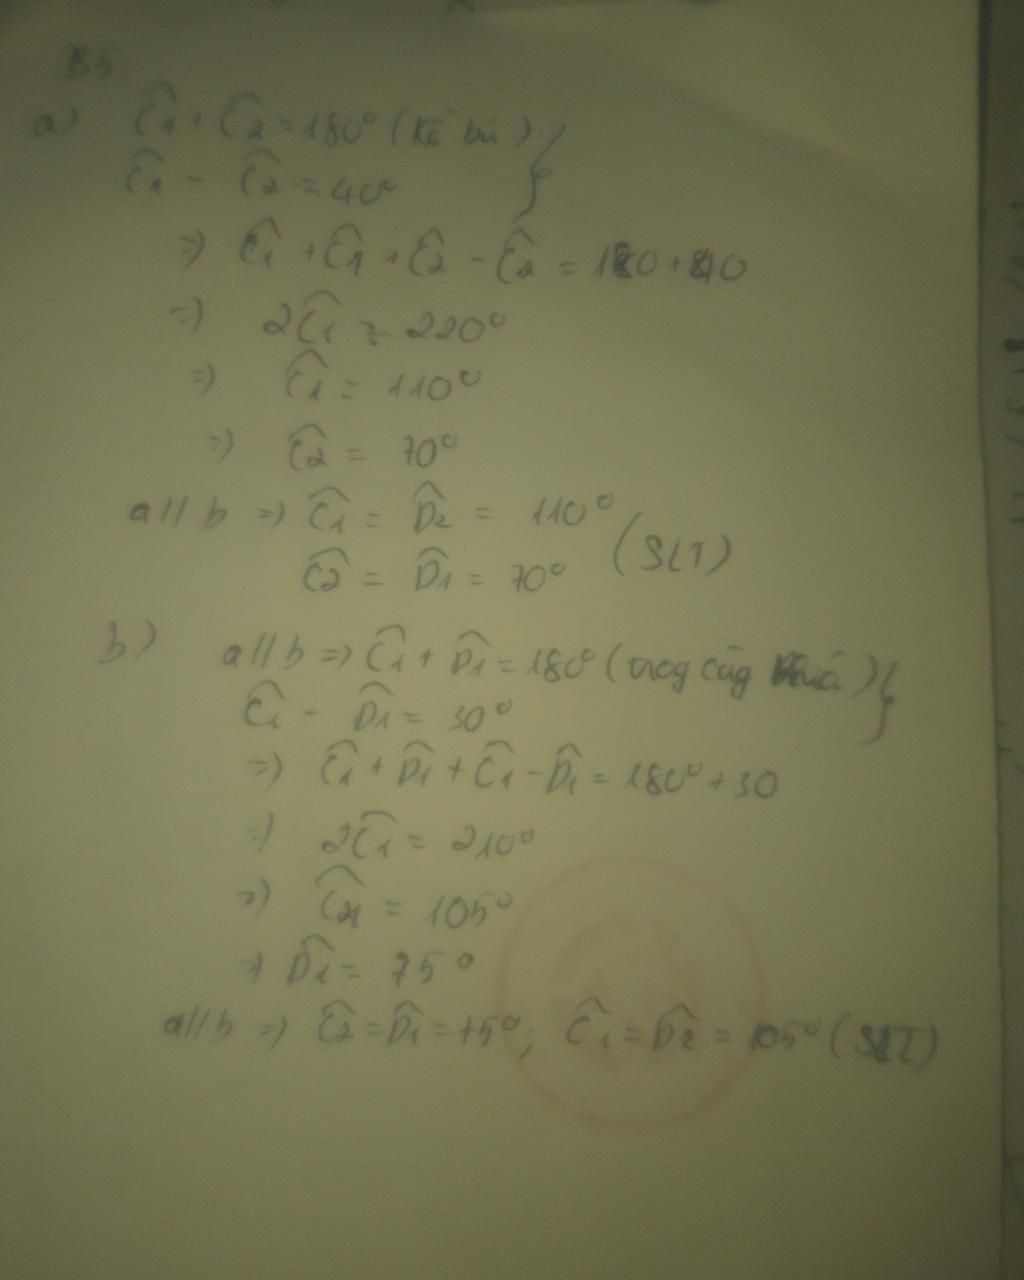 B5
a) Ĉ1 + Ĉ2 = 180° (kề bù) }
Ĉ1 - Ĉ2 = 40°
=) Ĉ1 + Ĉ1 + Ĉ2 - Ĉ2 = 180 + 40
=) 2Ĉ1 = 220°
=) Ĉ1 = 110°
=) Ĉ2 = 70°
a // b =) Ĉ1 = D̂2 = 110°
Ĉ2 = D̂1 = 70° (SLT)
b) a // b =) Ĉ1 + D̂1 = 180° (trog cùg phía) }
Ĉ1 - D̂1 = 30°
=) Ĉ1 + D̂1 + Ĉ1 - D̂1 = 180° + 30
=) 2Ĉ1 = 210°
=) Ĉ1 = 105°
=) D̂1 = 75°
a // b =) Ĉ2 = D̂1 = 75°, Ĉ1 = D̂2 = 105° (SLT)